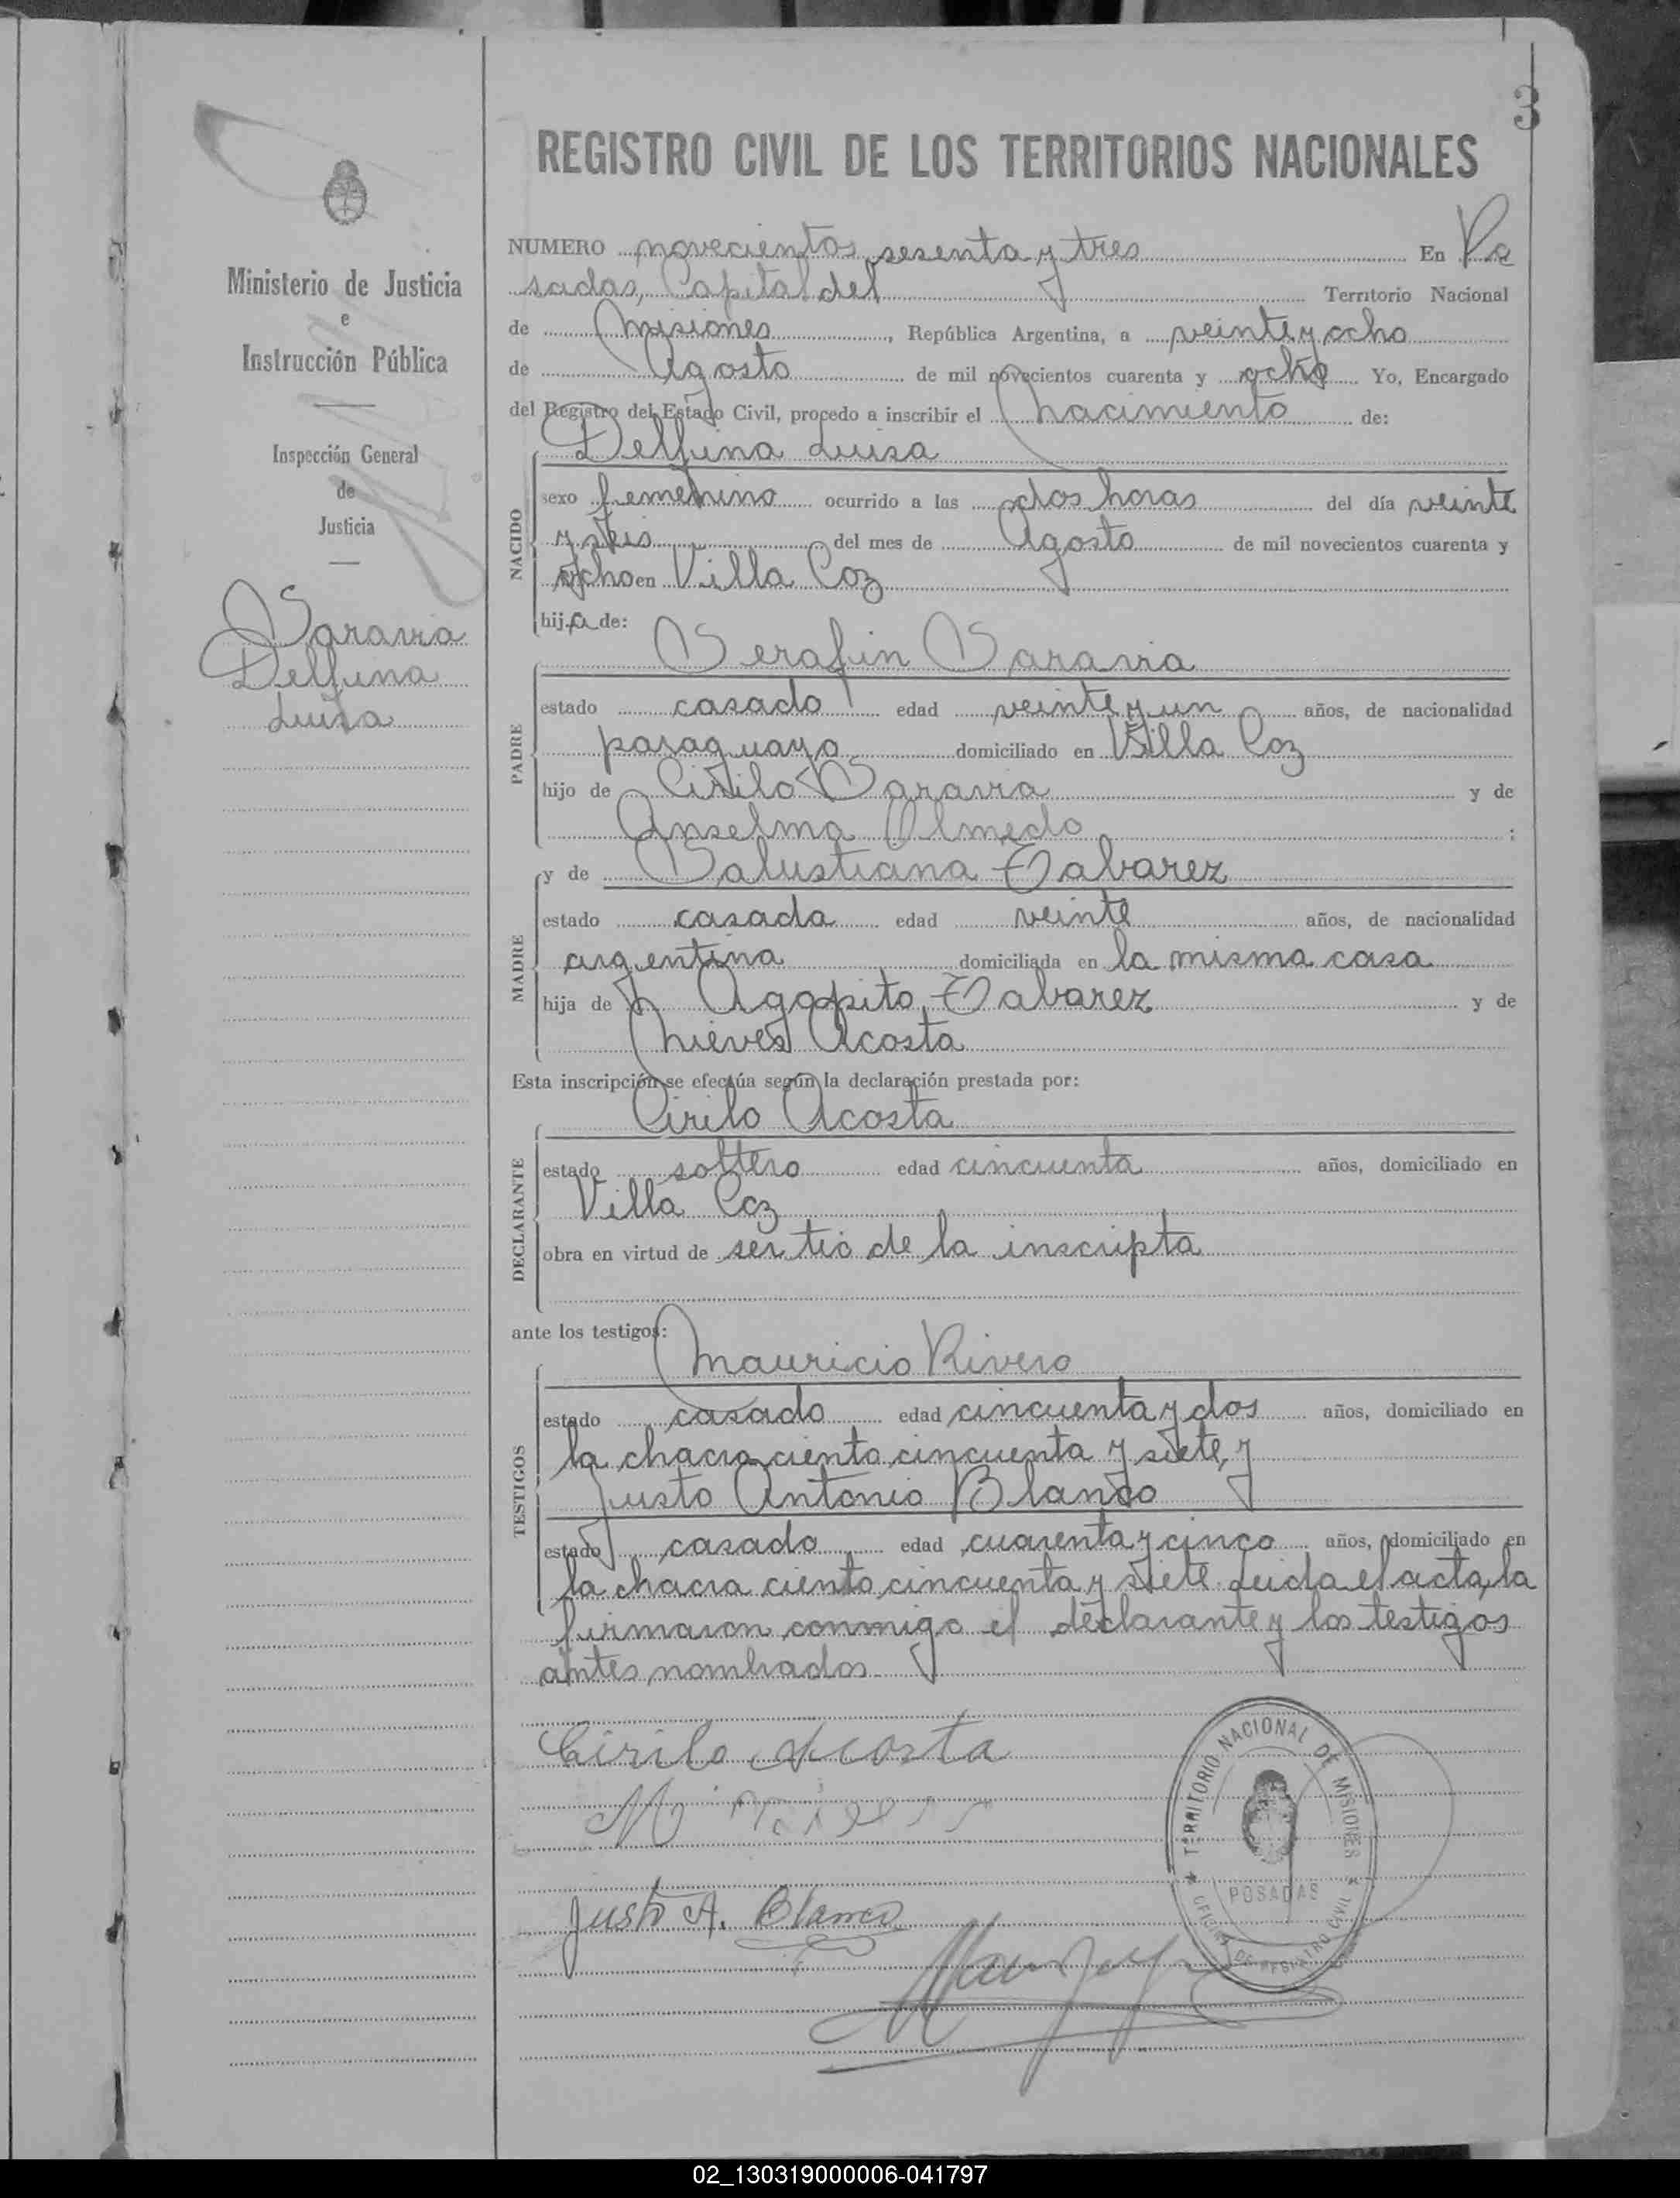 3
REGISTRO CIVIL DE LOS TERRITORIOS NACIONALES
Ministerio de Justicia
e
Instrucción Pública
Inspección General
de
Justicia
Saravia
Delfina
Luisa
NUMERO novecientos sesenta y tres En Po
sadas, Capital del Territorio Nacional
de Misiones, República Argentina, a veinte y ocho
de Agosto de mil novecientos cuarenta y ocho Yo, Encargado
del Registro del Estado Civil, procedo a inscribir el Nacimiento de:
Delfina Luisa
NACIDO
sexo femenino ocurrido a las dos horas del día veinte
y seis del mes de Agosto de mil novecientos cuarenta y
ocho en Villa Coz
hija de:
Serafin Saravia
PADRE
estado casado edad veinte y un años, de nacionalidad
paraguayo domiciliado en Villa Coz
hijo de Cirilo Saravia y de
Anselma Olmedo ;
y de Salustiana Tabarez
MADRE
estado casada edad veinte años, de nacionalidad
argentina domiciliada en la misma casa
hija de Agapito Tabarez y de
Nieves Acosta
Esta inscripción se efectúa según la declaración prestada por:
Cirilo Acosta
DECLARANTE
estado soltero edad cincuenta años, domiciliado en
Villa Coz
obra en virtud de ser tio de la inscripta
ante los testigos:
Mauricio Rivero
TESTIGOS
estado casado edad cincuenta y dos años, domiciliado en
la chacra ciento cincuenta y siete, y
Justo Antonio Blanco
estado casado edad cuarenta y cinco años, domiciliado en
la chacra ciento cincuenta y siete. Leida el acta, la
firmaron conmigo el declarante y los testigos
antes nombrados.
Cirilo Acosta
M Rivero
Justo A. Blanco
TERRITORIO NACIONAL DE MISIONES
POSADAS
OFICINA DE REGISTRO CIVIL
02_130319000006-041797